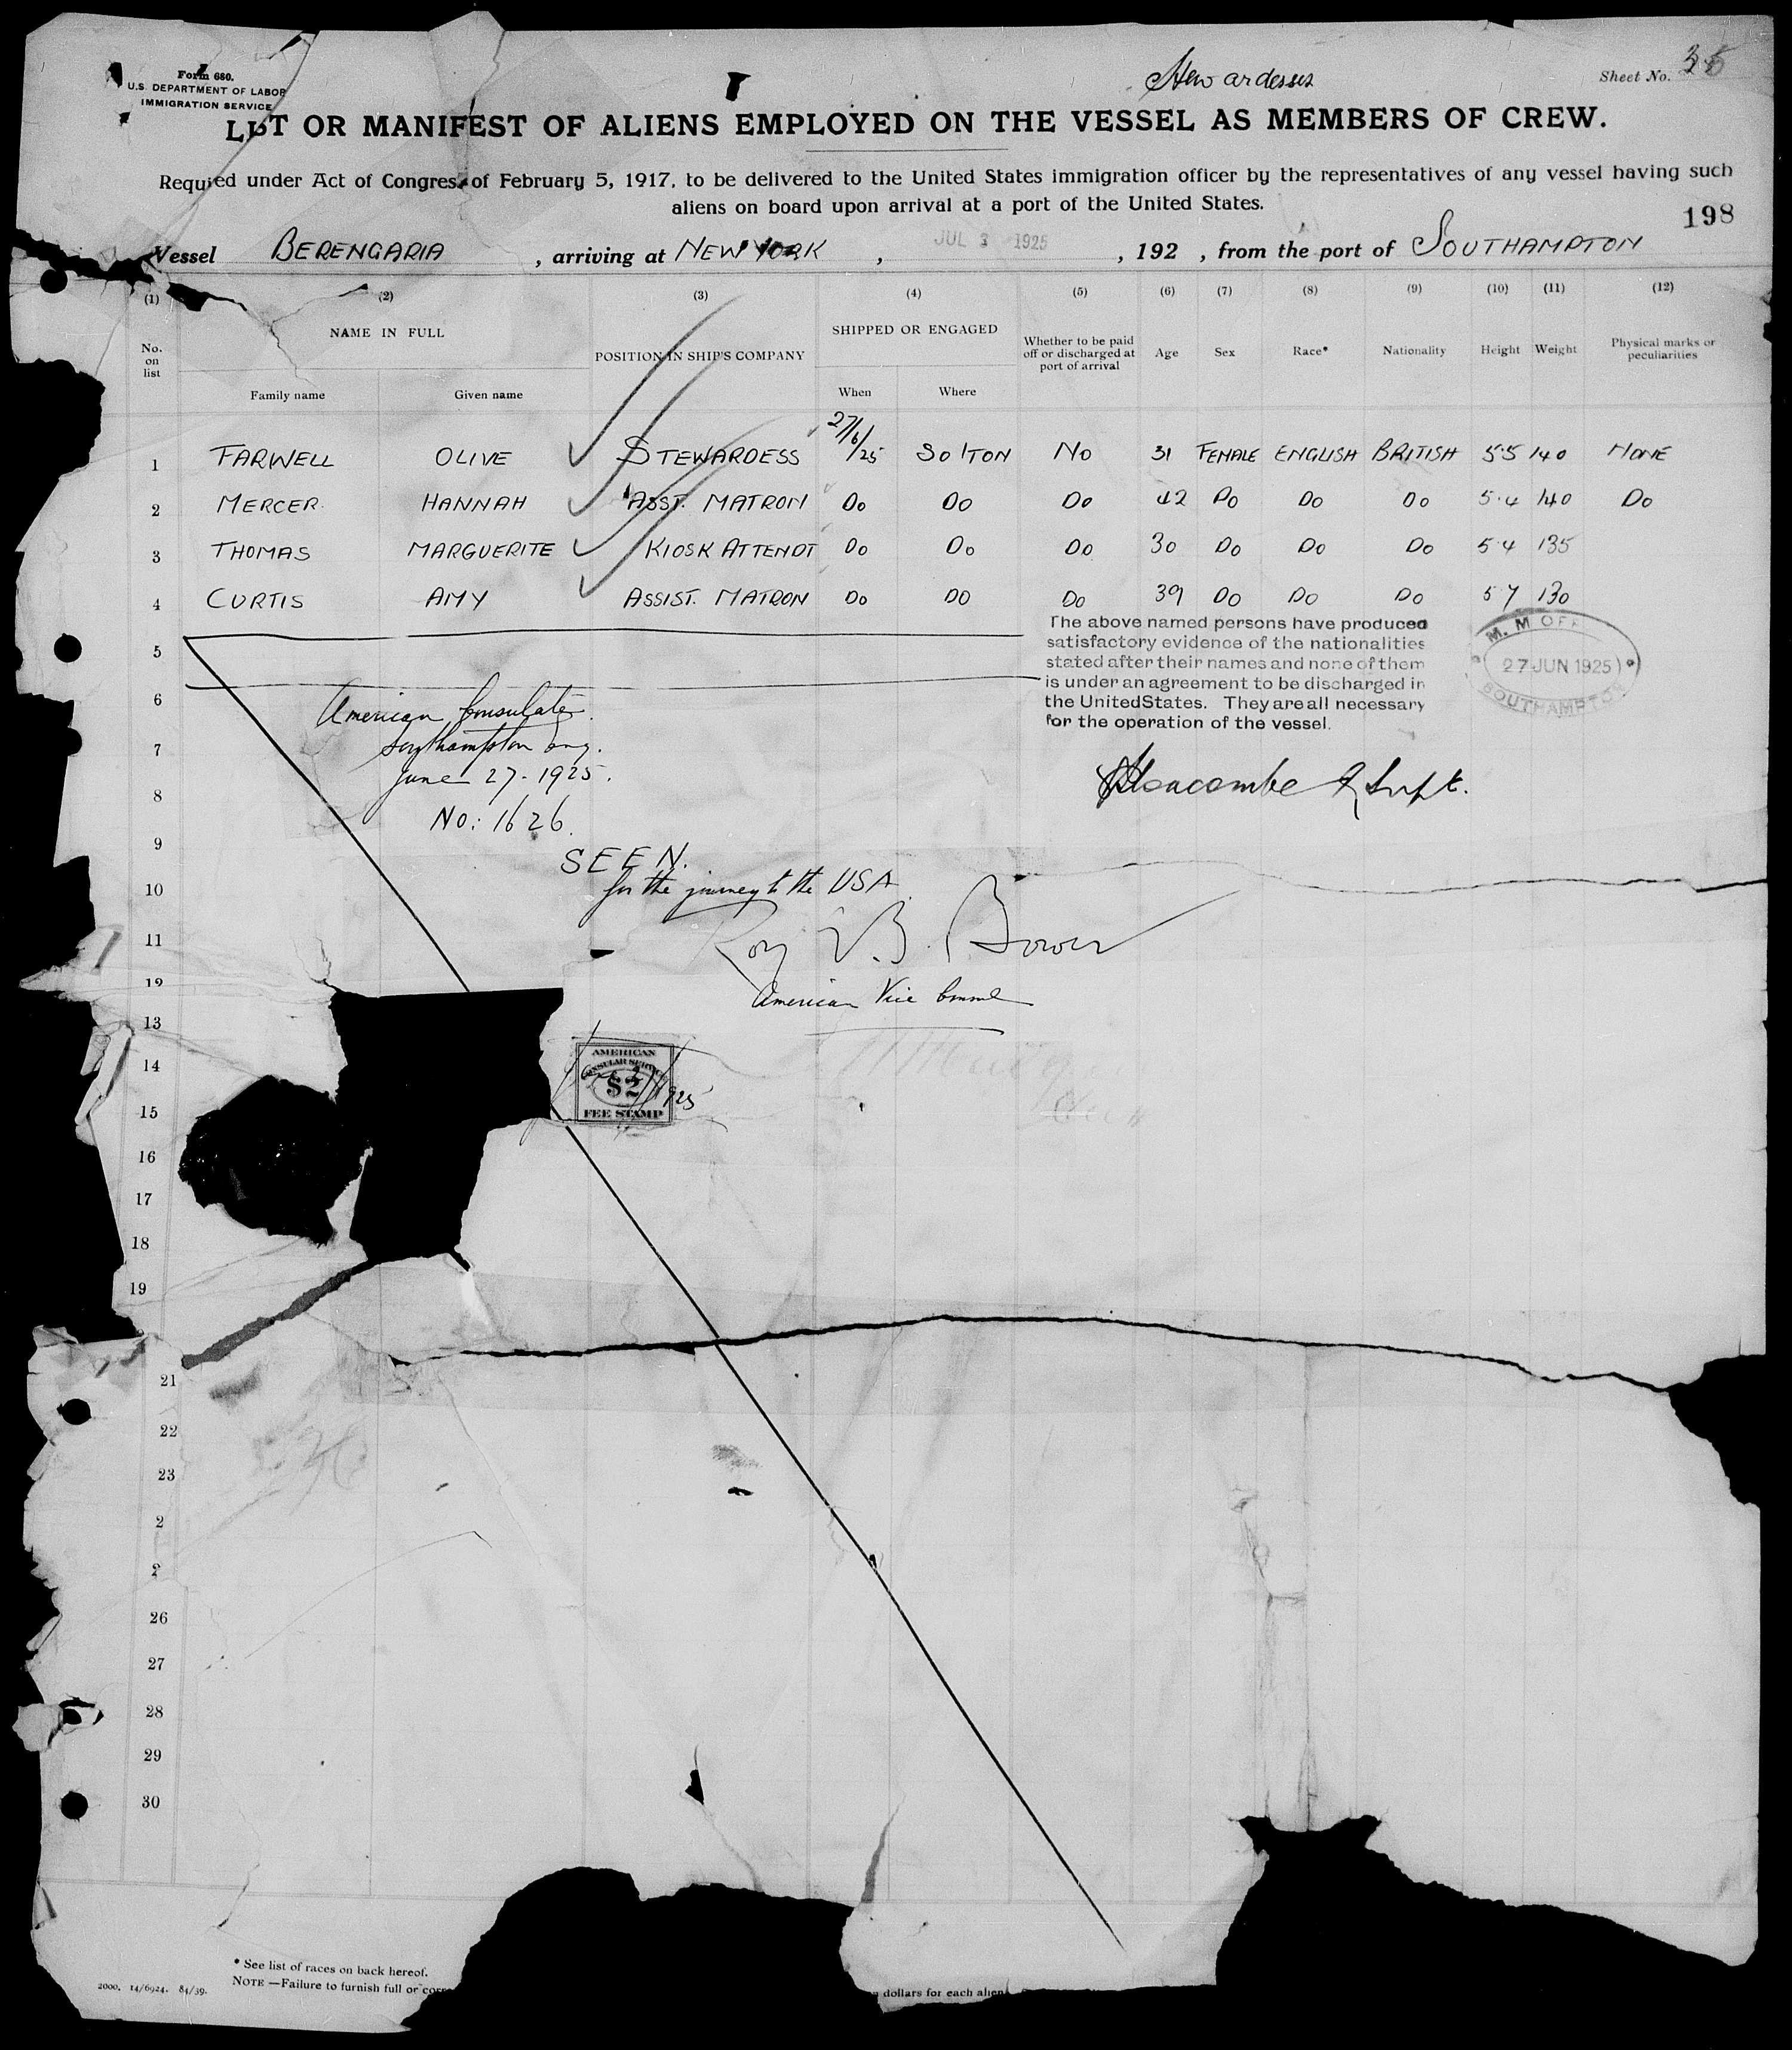 Form 680.
U.S. DEPARTMENT OF LABOR
IMMIGRATION SERVICE
Stewardesses
Sheet No. 35
LIST OR MANIFEST OF ALIENS EMPLOYED ON THE VESSEL AS MEMBERS OF CREW.
Required under Act of Congress of February 5, 1917, to be delivered to the United States immigration officer by the representatives of any vessel having such
aliens on board upon arrival at a port of the United States.
198
Vessel BERENGARIA, arriving at NEW YORK, JUL 3 1925, 192 , from the port of SOUTHAMPTON
(1) (2) (3) (4) (5) (6) (7) (8) (9) (10) (11) (12)
No. on list NAME IN FULL POSITION IN SHIP'S COMPANY SHIPPED OR ENGAGED Whether to be paid off or discharged at port of arrival Age Sex Race* Nationality Height Weight Physical marks or peculiarities
Family name Given name When Where
1 FARWELL OLIVE STEWARDESS 27/6/25 SO'TON NO 31 FEMALE ENGLISH BRITISH 5·5 140 NONE
2 MERCER HANNAH ASST. MATRON DO DO DO 42 DO DO DO 5·4 140 DO
3 THOMAS MARGUERITE KIOSK ATTENDT DO DO DO 30 DO DO DO 5·4 135
4 CURTIS AMY ASSIST. MATRON DO DO DO 39 DO DO DO 5 7 130
The above named persons have produced
satisfactory evidence of the nationalities
stated after their names and none of them
is under an agreement to be discharged in
the United States. They are all necessary
for the operation of the vessel.
M. M OFF
27 JUN 1925
SOUTHAMPTON
Supt.
5
6
7
8
9
10
11
12
13
14
15
16
17
18
19
21
22
23
2
2
26
27
28
29
30
American Consulate
Southampton Eng.
June 27 - 1925.
No: 1626.
SEEN.
for the journey to the USA
Roy B. Bower
American Vice Consul
AMERICAN
CONSULAR SERVICE
$2
FEE STAMP
1925
* See list of races on back hereof.
NOTE —Failure to furnish full or
dollars for each alien
2000. 14/6924. 84/39.